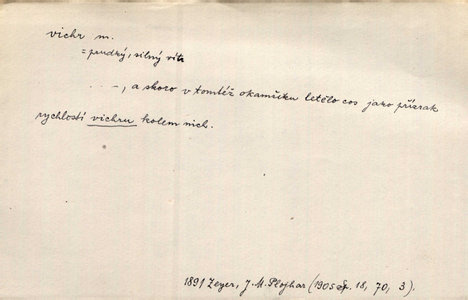 vichr m.
= prudký, silný vítr
. . –, a skoro v tomtéž okamžiku letělo cos jako přízrak
rychlostí vichru kolem nich.
1891 Zeyer, J. M. Plojhar (1905 Sp. 18, 70, 3).